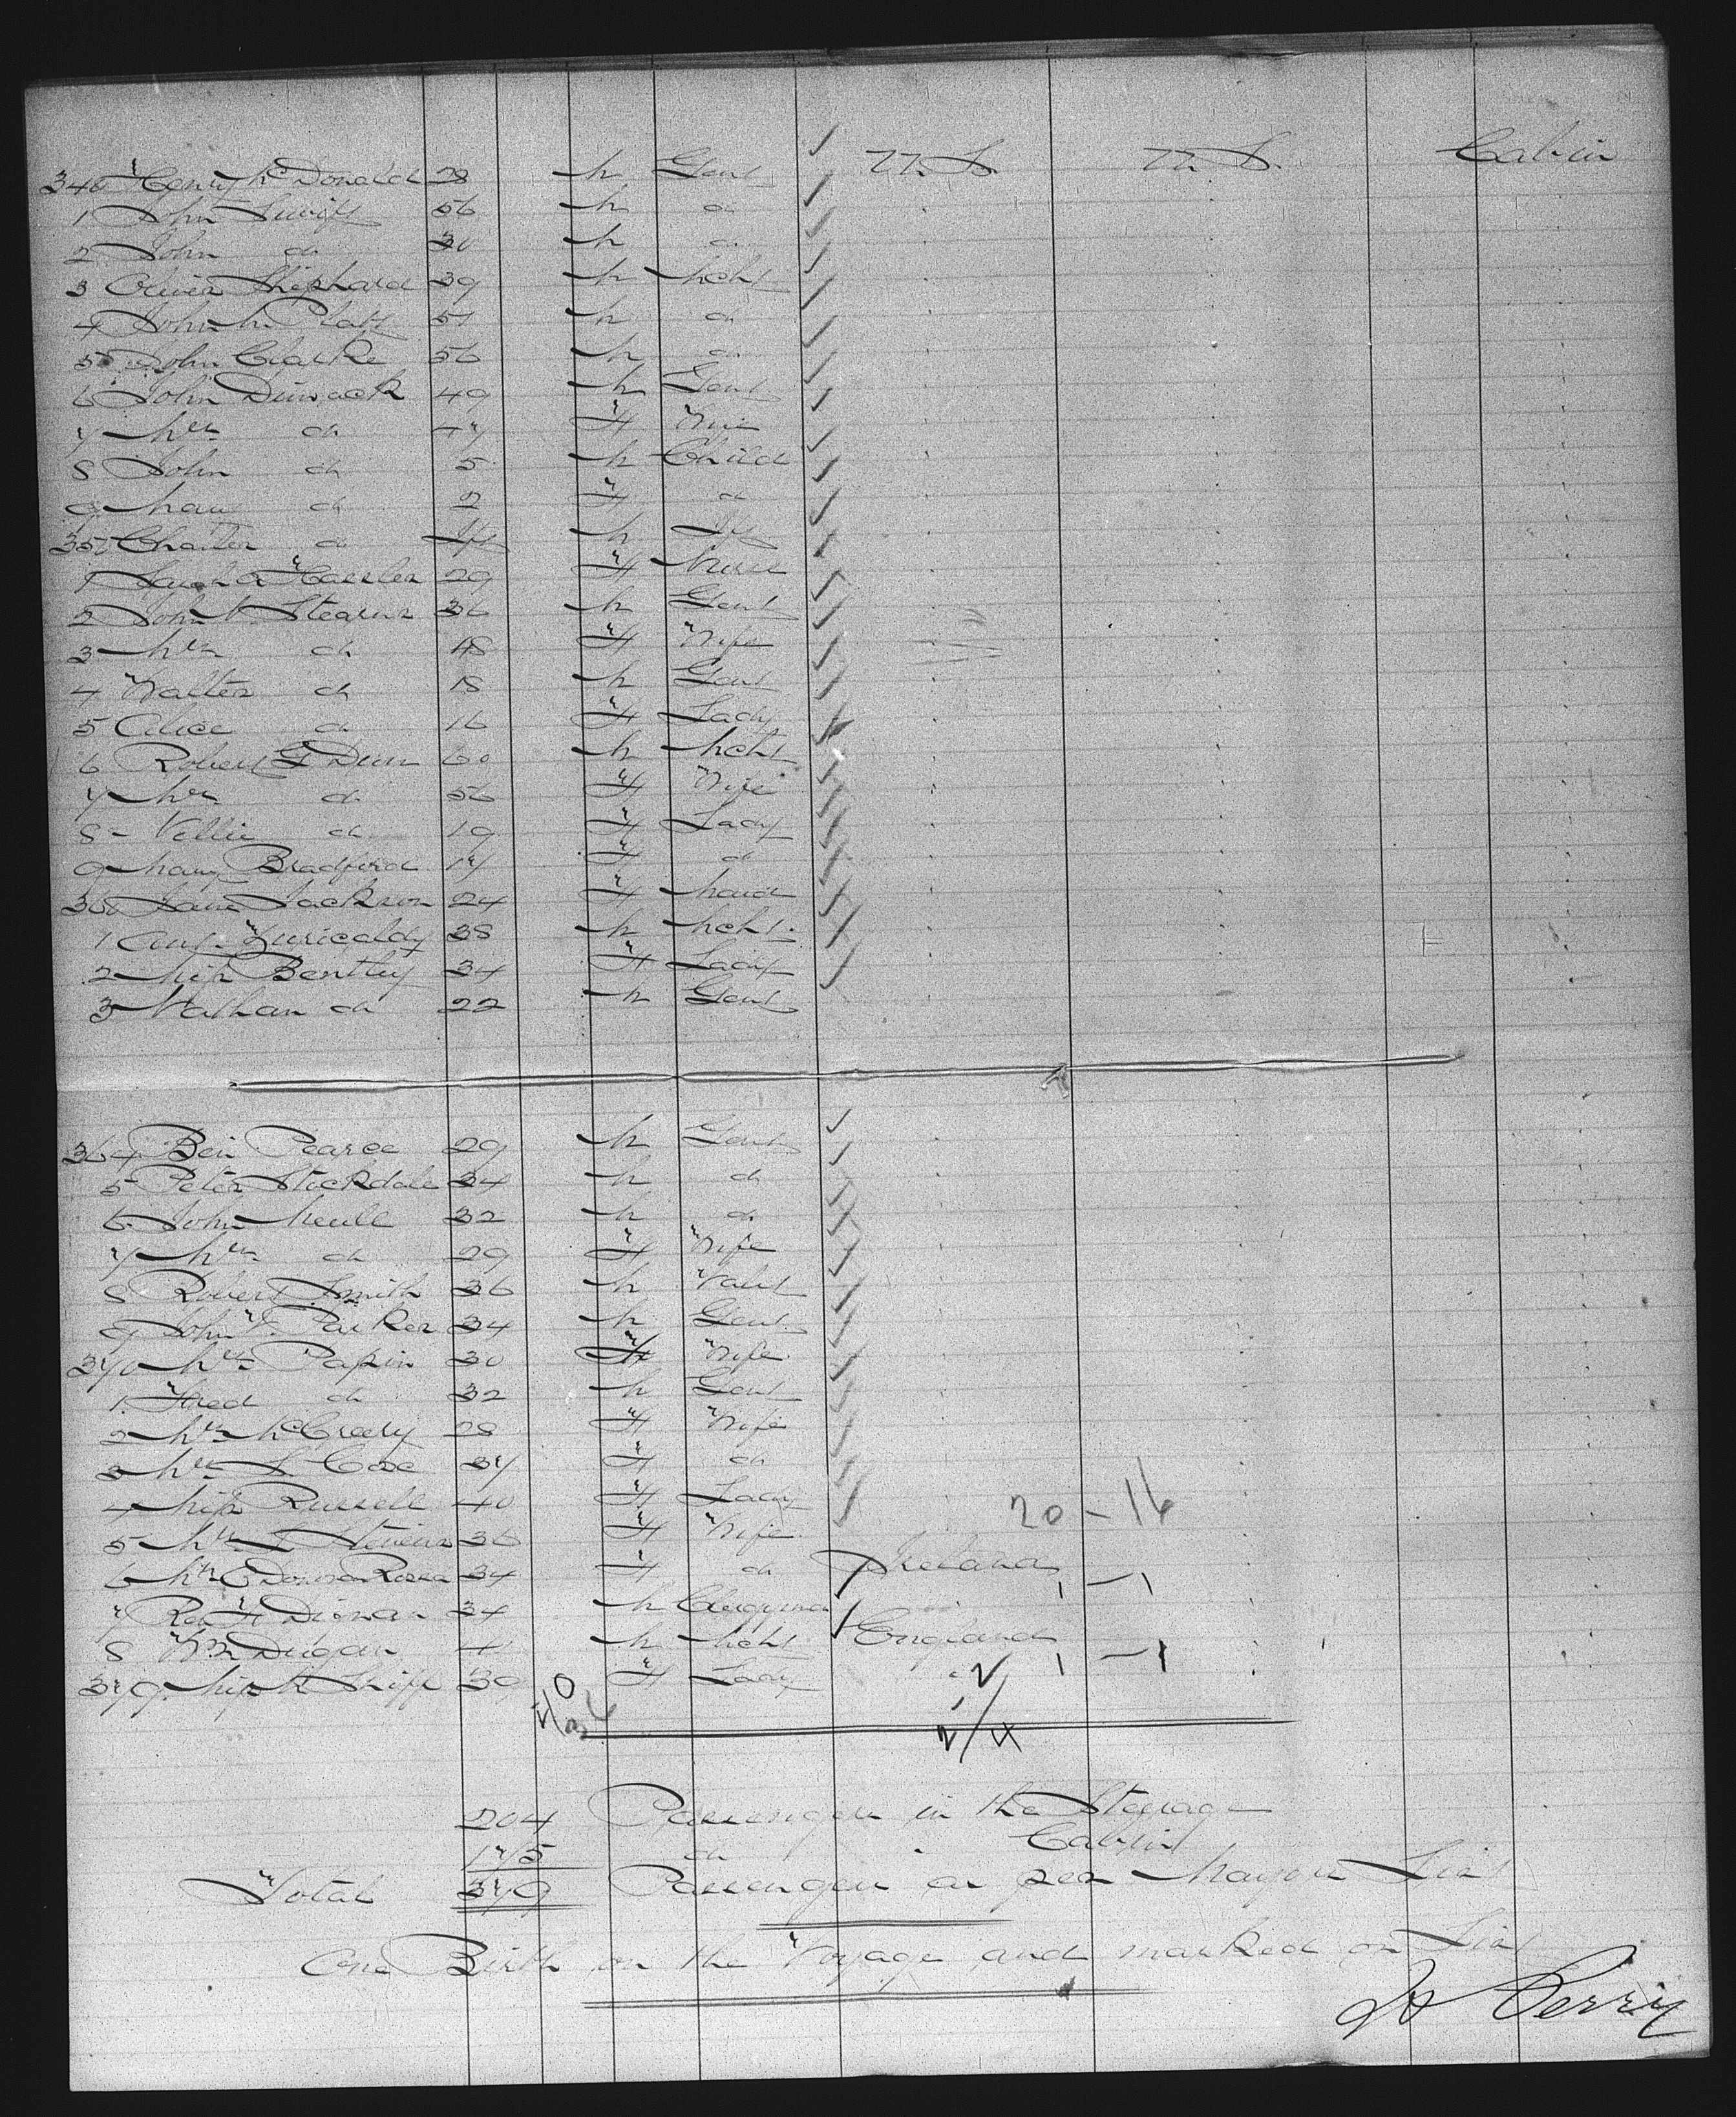 340 Henry McDonald 28 M Gent U.S. U.S. Cabin
1 John Swift 56 M do
2 John do 30 M do
3 Oliver Shephard 39 M Mcht
4 John M. Platt 51 M do
5 John Clarke 56 M do
6 John Dimock 49 M Gent
7 Mrs do F Wife
8 John do 5 M Child
9 Mary do 2 F do
350 do M
1 29 F Nurse
2 John N Stearns 36 M Gent
3 Mrs do 48 F Wife
4 Walter do 18 M Gent
5 Alice do 16 F Lady
6 Robert G Dun 60 M Mcht
7 Mrs do 56 F Wife
8 Nellie do 19 F Lady
9 Mary Bradford 17 F do
360 Jane Jackson 24 F Maid
1 Aug. 38 M Mcht.
2 Miss Bentley 34 F Lady
3 Nathan do 22 M Gent
364 Ben Pearce 29 M Gent
5 Peter Stockdale 34 M do
6 John 32 M do
7 Mrs do 29 F Wife
8 Robert Smith 36 M Valet
9 John T. Parker 34 M Gent.
370 Mrs Papin 30 F Wife
1 Fred do 32 M Gent
2 Mrs McCreery 28 F Wife
3 Mrs S Coxe 37 F do
4 Miss Russell 40 F Lady 20 - 16
5 Mrs Stevens 36 F Wife
6 Mrs O'Donovan Rossa 34 F do Ireland 1 - 1
7 Rev H Dignan 34 M Clergyman
8 Wm Dugan M Mcht England
379 Miss Shiff 39 F Lady 1 - 1
204 Passengers in the Steerage
175 do Cabin
Total 379 Passengers as per Mayors List
One Birth on the Voyage and marked on List
Perry